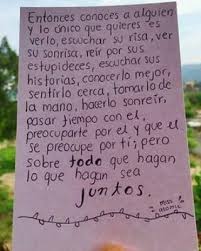 Entonces conoces a alguien
y lo único que quieres es
verlo, escuchar su risa, ver
su sonrisa, reír por sus
estupideces, escuchar sus
historias, conocerlo mejor,
sentirlo cerca, tomarlo de
la mano, hacerlo sonreír,
pasar tiempo con el,
preocuparte por el y que el
se preocupe por ti; pero
sobre todo que hagan
lo que hagan sea
juntos.
Miss
atomic